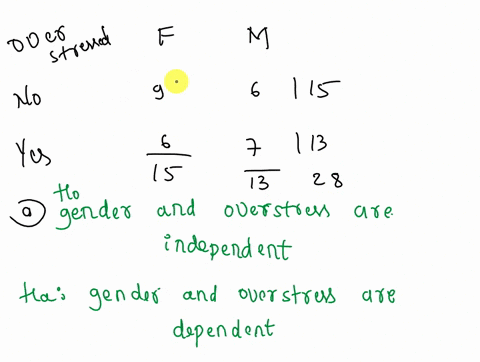 Over stressed F M
No 9 6 | 15
Yes 6 7 | 13
15 13 28
a) Ho gender and overstress are
independent
Ha: gender and overstress are
dependent